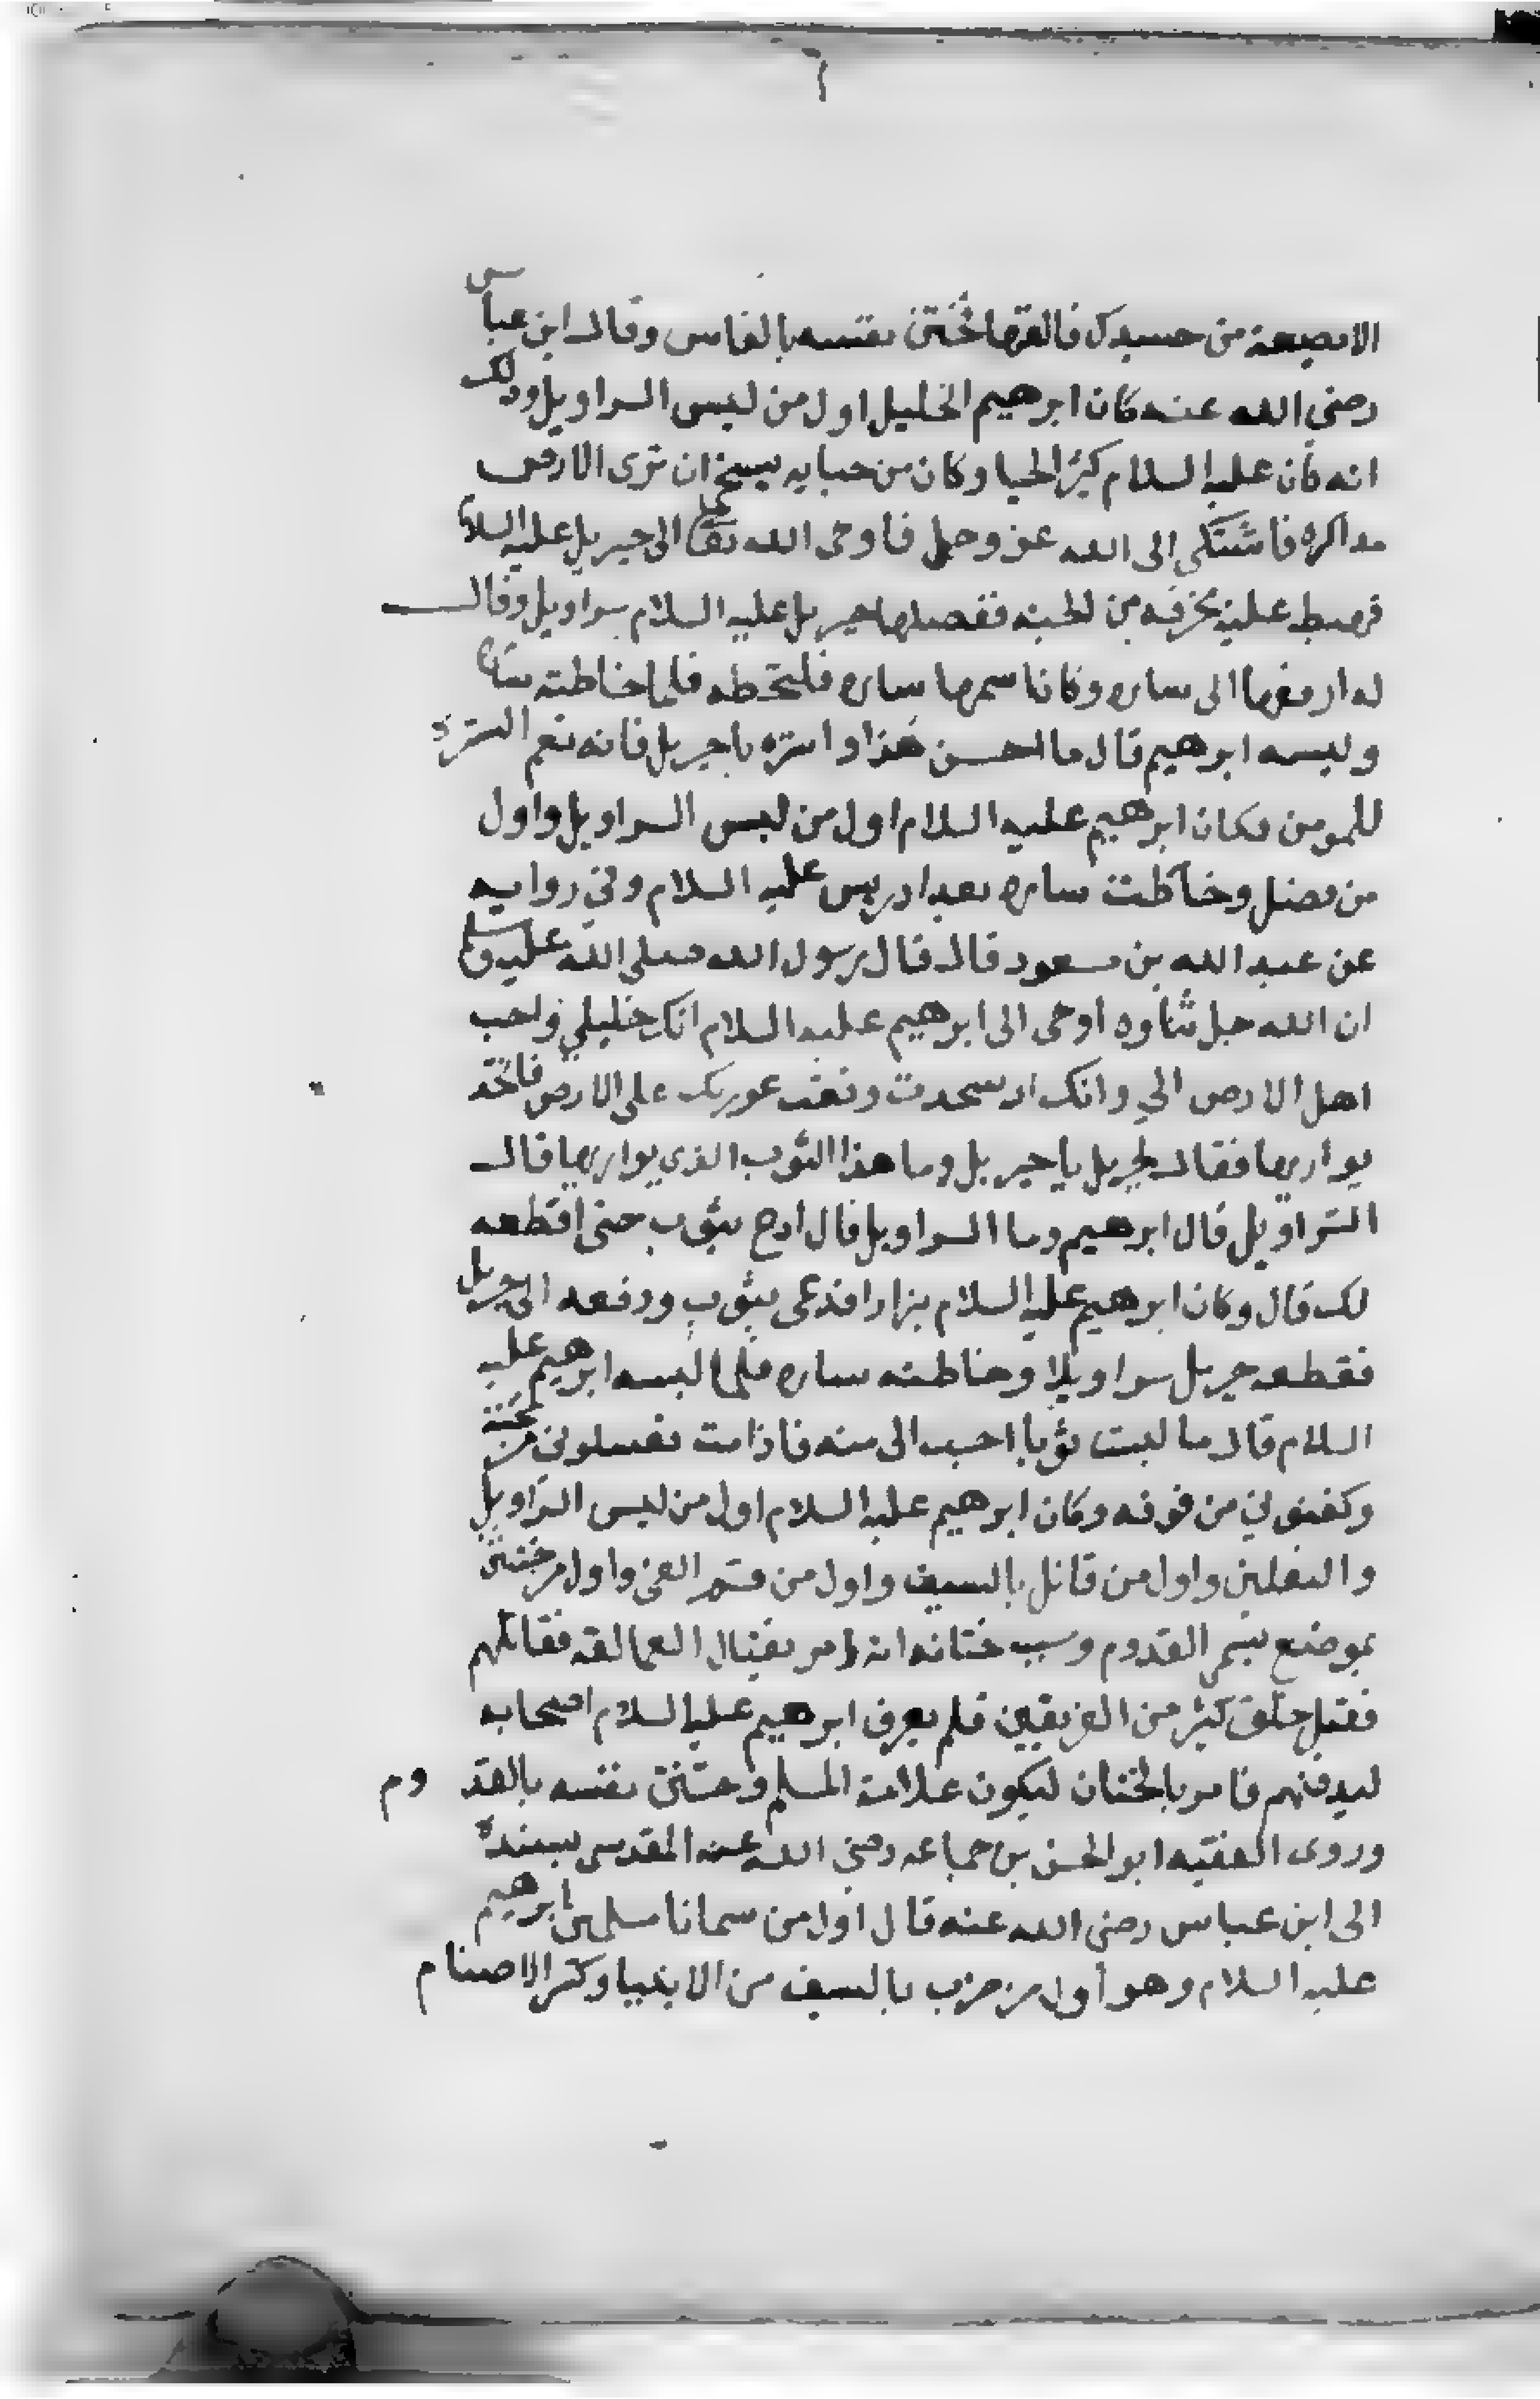 ٦
الا بضعة من جسدك فالقها فختن نفسه بالفاس وقال ابن عباس
رضى الله عنه كان ابرهيم الخليل اول من لبس السراويل وذلك
انه كان عليه السلام كثير الحيا وكان من حيايه يستحي ان ترى الارض
مذاكره فاشتكى الى الله عز وجل فاوحى الله تعالى الى جبريل عليه السلام
فهبط عليه بخرقه من الجنه ففصلها جبريل عليه السلام سراويل وقال
له ادفعها الى ساره وكان اسمها ساره فلتخطه فلما خاطته ساره
ولبسه ابرهيم قال ما احسن هذا واستره يا جبريل فانه نعم الستر
للمومن فكان ابرهيم عليه السلام اول من لبس السراويل واول
من فصل وخاطت ساره بعد ادريس عليه السلام وفي روايه
عن عبد الله بن مسعود قال قال رسول الله صلى الله عليه وسلم
ان الله جل ثناوه اوحى الى ابرهيم عليه السلام انك خليلي واحب
اهل الارض الي وانك اذ سجدت وقعت عورتك على الارض فاتخذ
يواريها فقال لجبريل يا جبريل وما هذا الثوب الذي يواريها قال
السراويل قال ابرهيم وما السراويل قال ادع بثوب حتى اقطعه
لك قال وكان ابرهيم عليه السلام بزازا فدعى بثوب ودفعه الى جبريل
فقطعه جبريل سراويلا وخاطته ساره فلما لبسه ابرهيم عليه
السلام قال ما لبست ثوبا احب الى منه فاذا مت فغسلوني من تحته
وكفنوني من فوقه وكان ابرهيم عليه السلام اول من لبس السراويل
والنعلين واول من قاتل بالسيف واول من قسم الفى واول من ختتن
بموضع يسمى القدوم وسبب ختانه انه امر بقتال العمالقه فقاتلهم
فقتل خلق كثير من الفريقين فلم يعرف ابرهيم عليه السلام اصحابه
ليدفنهم فامر بالختان ليكون علامة المسلم وختتن نفسه بالقدوم
وروى الفقيه ابو الحسن بن جماعه رضي الله عنه المقدسي بسنده
الى ابن عباس رضى الله عنه قال اول من سمانا مسلمين ابرهيم
عليه السلام وهو اول من ضرب بالسيف من الانبيا وكسر الاصنام